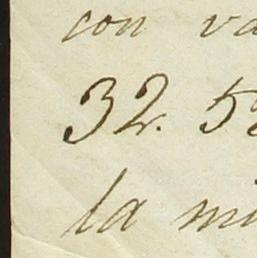 con va
32. 5
la mi